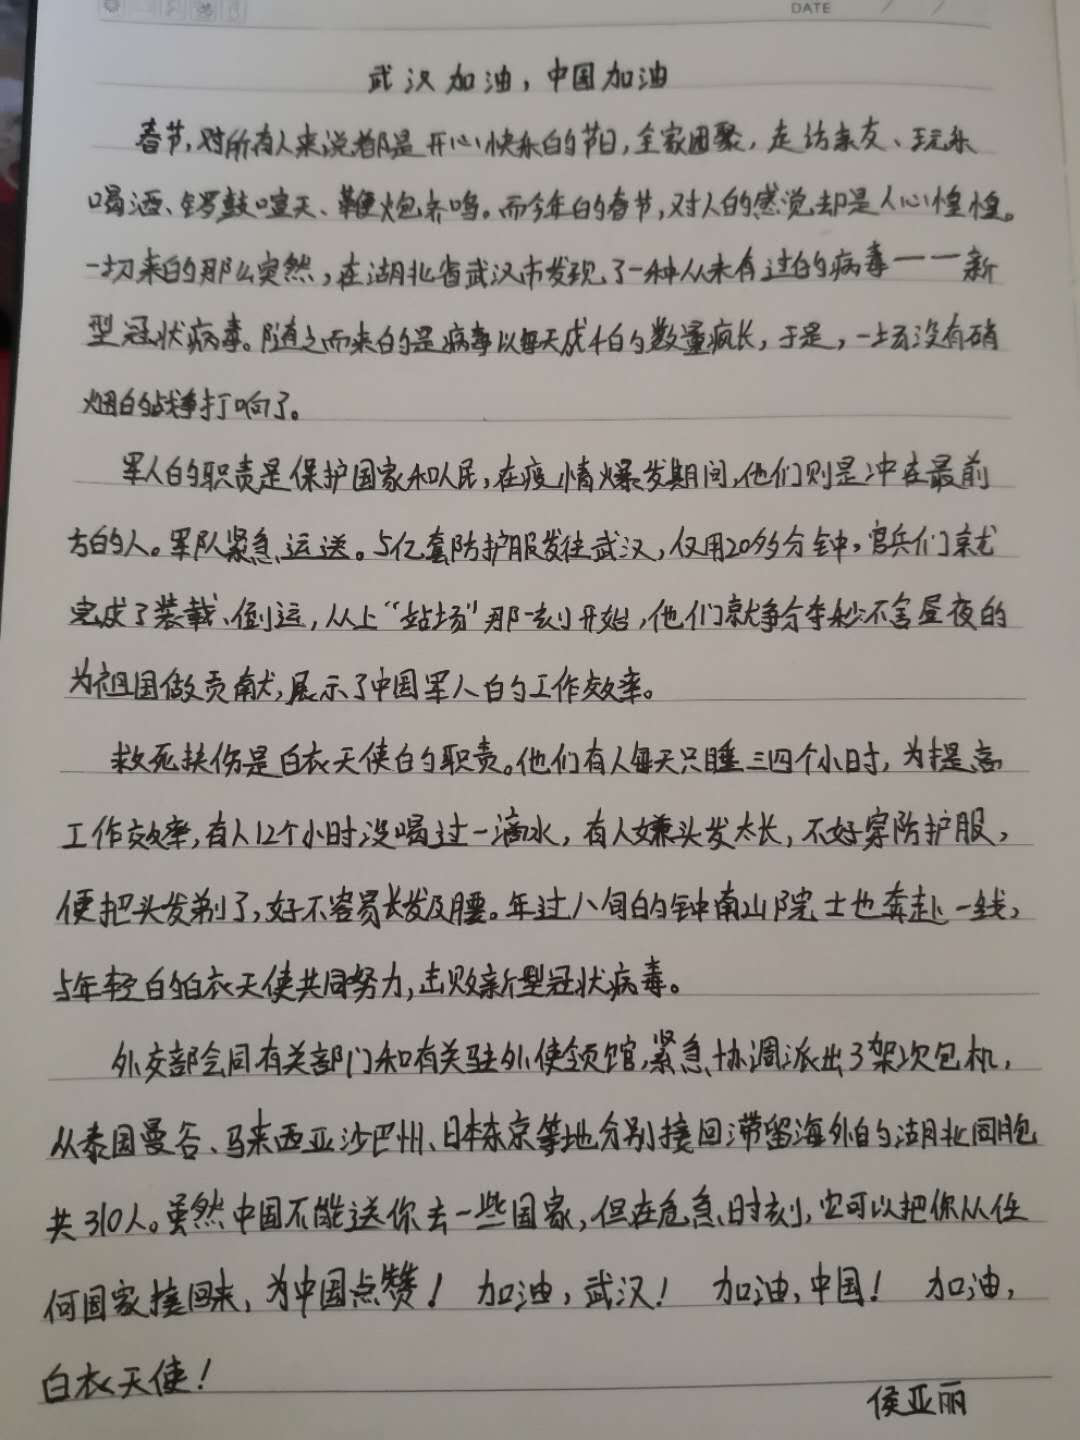 DATE / /
武汉加油，中国加油
春节，对所有人来说都是开心快乐的节日，全家团聚，走访亲友、玩乐
喝酒、锣鼓喧天、鞭炮齐鸣。而今年的春节，对人的感觉却是人心惶惶。
一切来的那么突然，在湖北省武汉市发现了一种从未有过的病毒——新
型冠状病毒。随之而来的是病毒以每天成千的数量疯长，于是，一场没有硝
烟的战争打响了。
军人的职责是保护国家和人民，在疫情爆发期间，他们则是冲在最前
方的人。军队紧急运送。5亿套防护服发往武汉，仅用20多分钟，官兵们就
完成了装载、倒运，从上“站场”那一刻开始，他们就争分夺秒不舍昼夜的
为祖国做贡献，展示了中国军人的工作效率。
救死扶伤是白衣天使的职责。他们有人每天只睡三四个小时，为提高
工作效率，有人12个小时没喝过一滴水，有人嫌头发太长，不好穿防护服，
便把头发剃了，好不容易长发及腰。年过八旬的钟南山院士也奔赴一线，
与年轻的白衣天使共同努力，击败新型冠状病毒。
外交部会同有关部门和有关驻外使领馆，紧急协调派出3架次包机，
从泰国曼谷、马来西亚沙巴州、日本东京等地分别接回滞留海外的湖北同胞
共310人。虽然中国不能送你去一些国家，但在危急时刻，它可以把你从任
何国家接回来，为中国点赞！ 加油，武汉！ 加油，中国！ 加油，
白衣天使！
侯亚丽